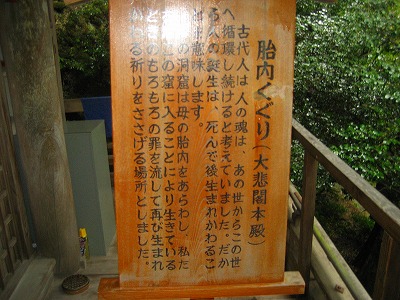 胎内くぐり(大悲閣本殿)
古代人は人の魂は、あの世からこの世
へ循環し続けると考えていました。だか
ら人の誕生は、死んで後生まれかわるこ
とを意味します。
この洞窟は母の胎内をあらわし、私た
ちがこの窟に入ることにより生きている
ときのもろもろの罪を流して再び生まれ
かわる祈りをささげる場所としました。